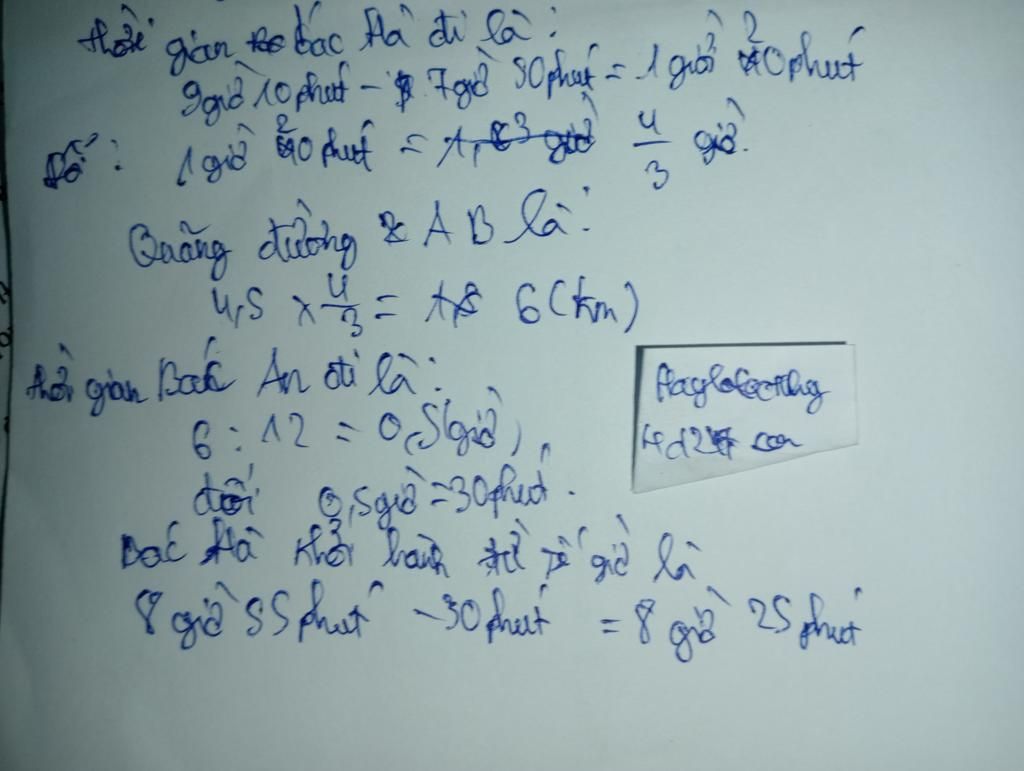 thời gian bác Hà đi là:
9giờ 10phút - 7giờ 50phút = 1 giờ 20phút
Đổi: 1 giờ 20phút = 4/3 giờ.
Quãng đường AB là:
4,5 x 4/3 = 6 (km)
thời gian Bác An đi là:
6 : 12 = 0,5(giờ)
đổi 0,5giờ = 30phút.
Bác Hà khởi hành giờ là
8 giờ 55phút - 30phút = 8 giờ 25phút